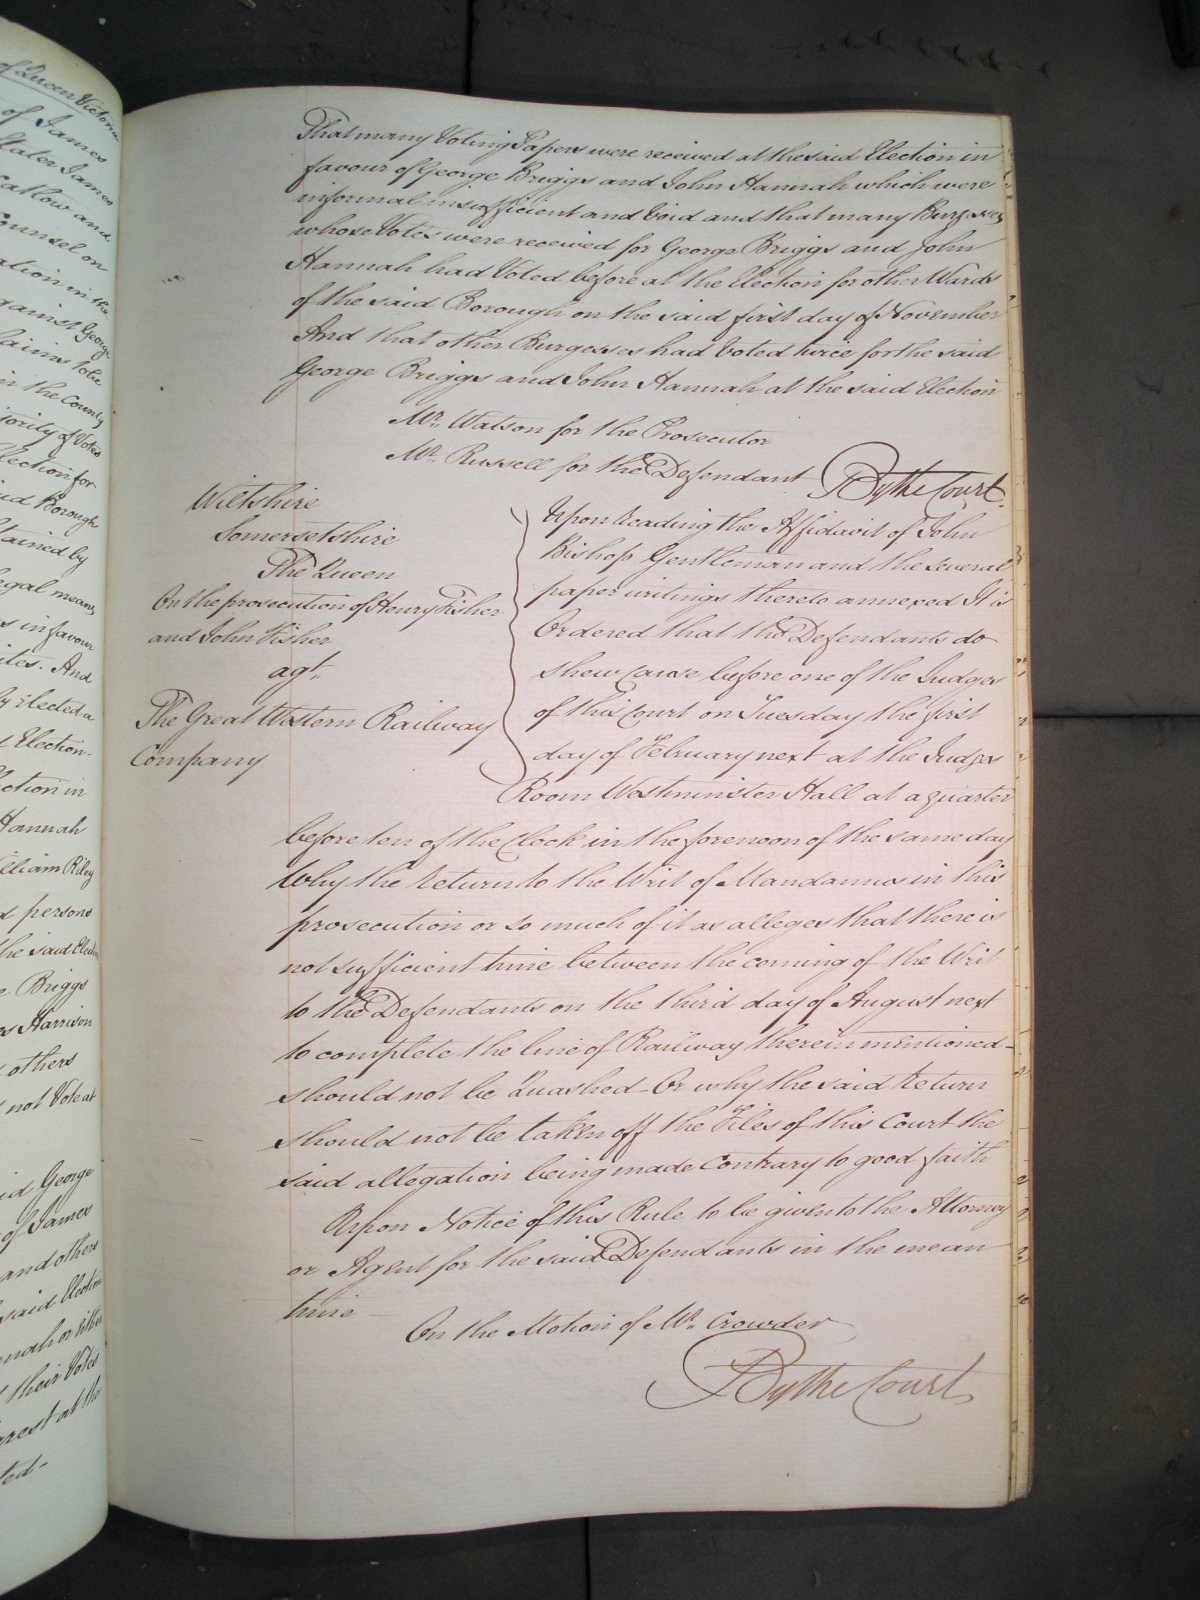 of Queen Victoria
of James
Slater James
Catlow and
Counsel on
ation in the
against George
laims to be
in the County
jority of Votes
lection for
aid Borough
tained by
egal means
s in favour
ites. And
ly Elected a
d Election
lection in
Hannah
illiam Riley
d persons
he said Election
e Briggs
es Harrison
d others
d not Vote at
id George
of James
and others
said Election
nnah or either
d their Votes
rest at the
ted -
That many Voting Papers were received at the said Election in
favour of George Briggs and John Hannah which were
informal insufficient and Void and that many Burgesses
whose Votes were received for George Briggs and John
Hannah had Voted before at the Election for other Wards
of the said Borough on the said first day of November
And that other Burgesses had Voted twice for the said
George Briggs and John Hannah at the said Election
Mr. Watson for the Prosecutor
Mr. Russell for the Defendant By the Court.
Wiltshire
Somersetshire
The Queen
On the prosecution of Henry Fisher
and John Fisher
agt.
The Great Western Railway
Company
Upon Reading the Affidavit of John
Bishop Gentleman and the several
paper writings thereto annexed It is
Ordered that the Defendants do
shew cause before one of the Judges
of this Court on Tuesday the first
day of February next at the Judges
Room Westminster Hall at a quarter
before ten of the Clock in the forenoon of the same day
Why the Return to the Writ of Mandamus in this
prosecution or so much of it as alleges that there is
not sufficient time between the coming of the Writ
to the Defendants on the third day of August next
to complete the line of Railway therein mentioned -
should not be Quashed - Or why the said Return
should not be taken off the Files of this Court the
said allegation being made contrary to good faith
Upon Notice of this Rule to be given to the Attorney
or Agent for the said Defendants in the mean
time -
On the Motion of Mr. Crowder
By the Court